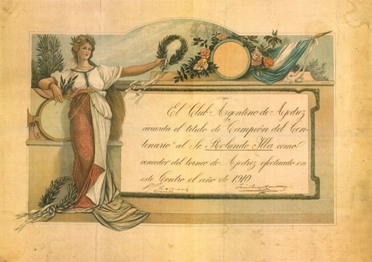 El Club Argentino de Ajedrez
acuerda el titulo de Campeón del Cen-
tenario al Sr. Rolando Illa como
vencedor del torneo de Ajedrez efectuado en
este Centro el año de 1910